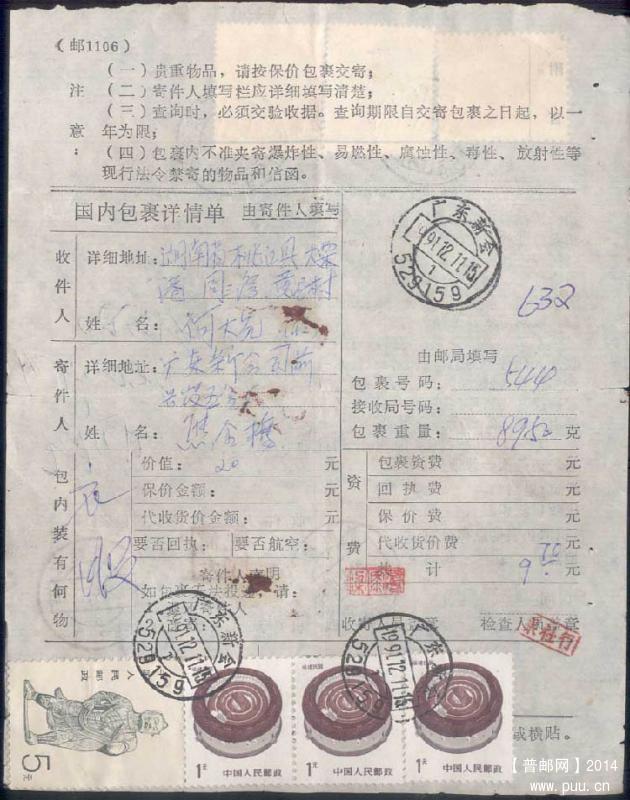 （邮1106）
（一）贵重物品，请按保价包裹交寄；
注 （二）寄件人填写栏应详细填写清楚；
（三）查询时，必须交验收据。查询期限自交寄包裹之日起，以一
意 年为限；
： （四）包裹内不准夹寄爆炸性、易燃性、腐蚀性、毒性、放射性等
现行法令禁寄的物品和信函。
国内包裹详情单 由寄件人填写
收件人
详细地址：湖南省桃江县
村
姓 名：何大
寄件人
详细地址：广东新会司前
姓 名：
包内装有何物
衣服
价值：20 元
保价金额： 元
代收货价金额： 元
要否回执： 要否航空：
寄件人声明
如包裹无法投递，请：
人
广东新会
1991.12.11.15
1
529159
632
由邮局填写
包裹号码：544
接收局号码：
包裹重量：8950 克
资费
包裹资费 元
回执费 元
保价费 元
代收货价费 元
共计 9.70 元
收寄人员签章 检查人员签章
广东新会
1991.12.11.15
1
529159
广东新会
1991.12.11.15
1
529159
中国人民邮政
5元
福建民居
1元 中国人民邮政
1元 中国人民邮政
福建民居
1元 中国人民邮政
或横贴。
【普邮网】2014
www.puu.cn